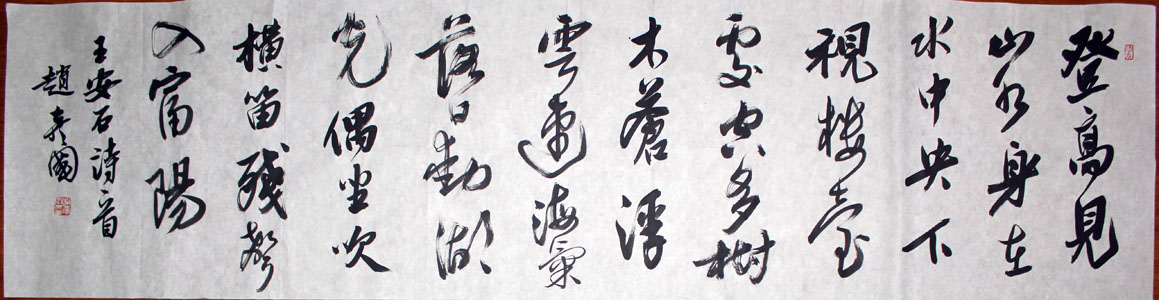 登高見
山水身在
水中央下
視樓臺
處空多樹
木蒼浮
雲連海氣
落日動湖
光偶坐吹
横笛殘聲
入富陽
王安石詩一首
趙國